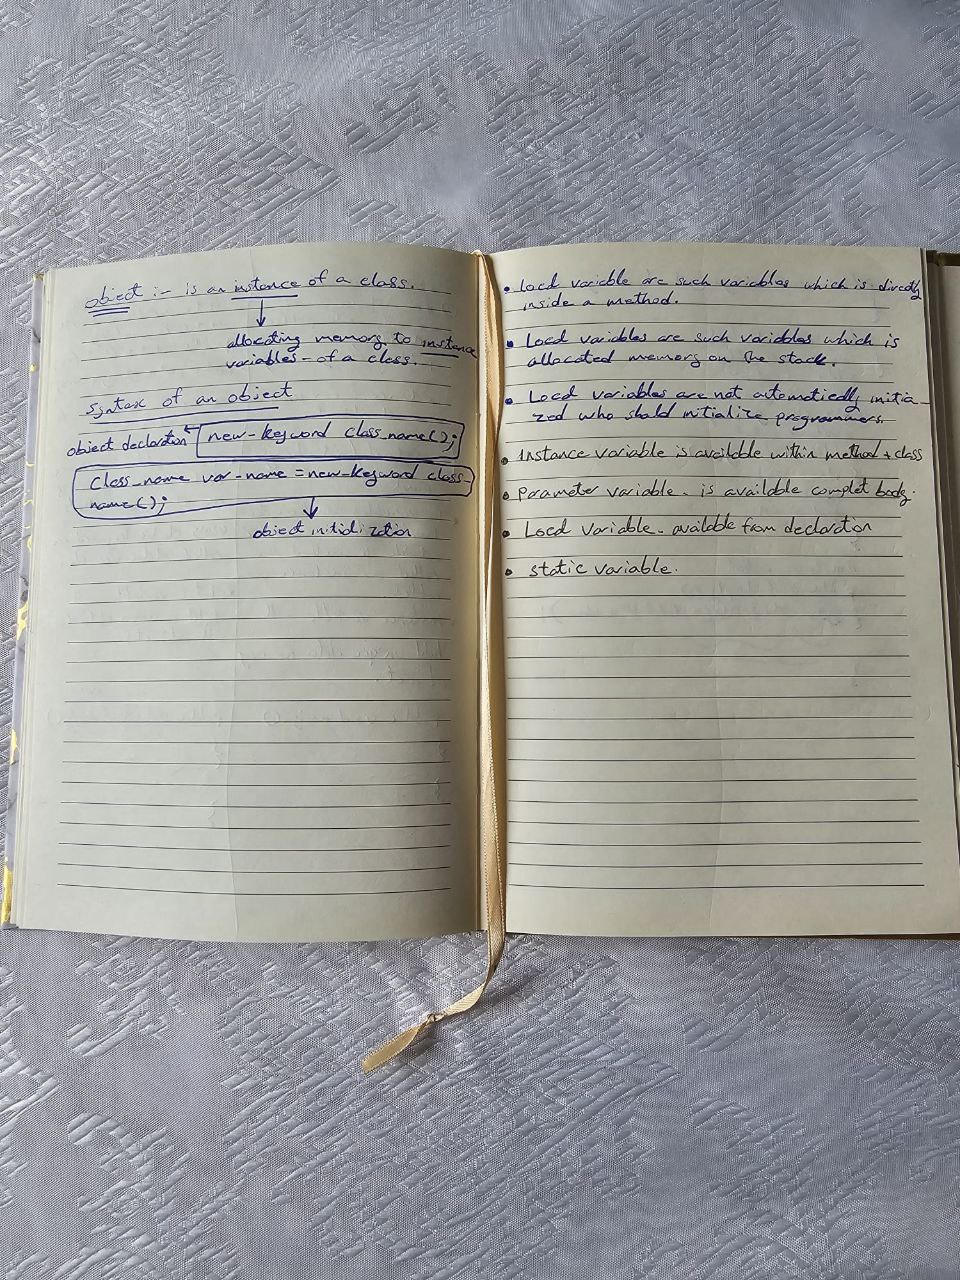 object :- is an instance of a class.
allocating memory to instance
variables - of a class.
syntax of an object
object declaration
new-keyword class_name();
class_name var-name = new-keyword class_
name();
object initialization
• local variable are such variables which is directly
inside a method.
• Local variables are such variables which is
allocated memory on the stack.
• Local variables are not automatically initia-
zed who shald initialize programmers.
• instance variable is available within method + class
• parameter variable - is available complet body.
• Local variable - available from declaration
• static variable.